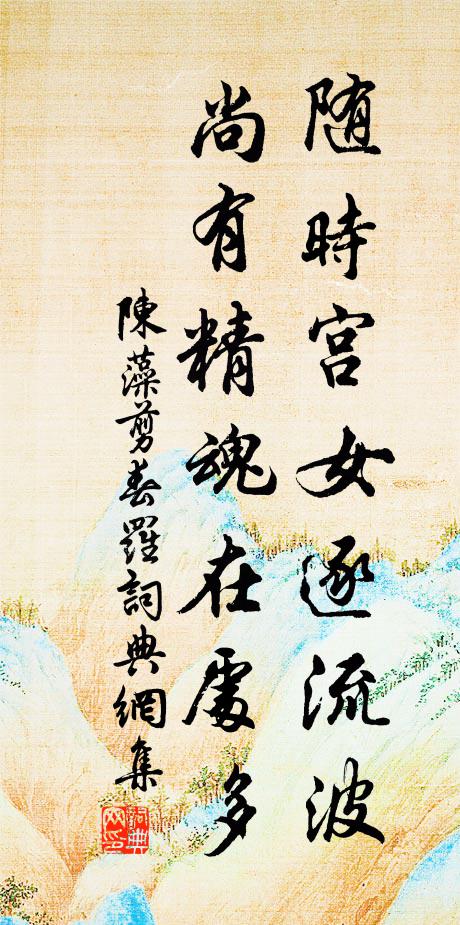 随時宫女逐流波
尚有精魂在處多
陳藻剪春羅詞典網集
詞典網印